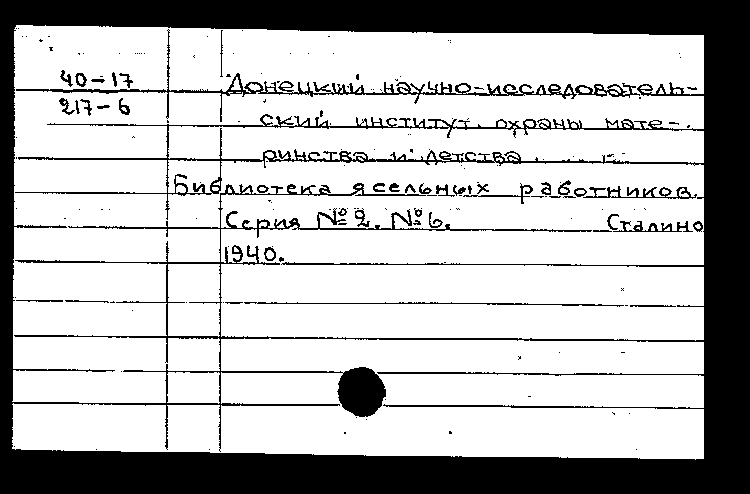 40-17
217-6
Донецкий научно-исследователь-
ский институт охраны мате-
ринства и детства
Библиотека ясельных работников.
Серия № 2. № 6. Сталино
1940.